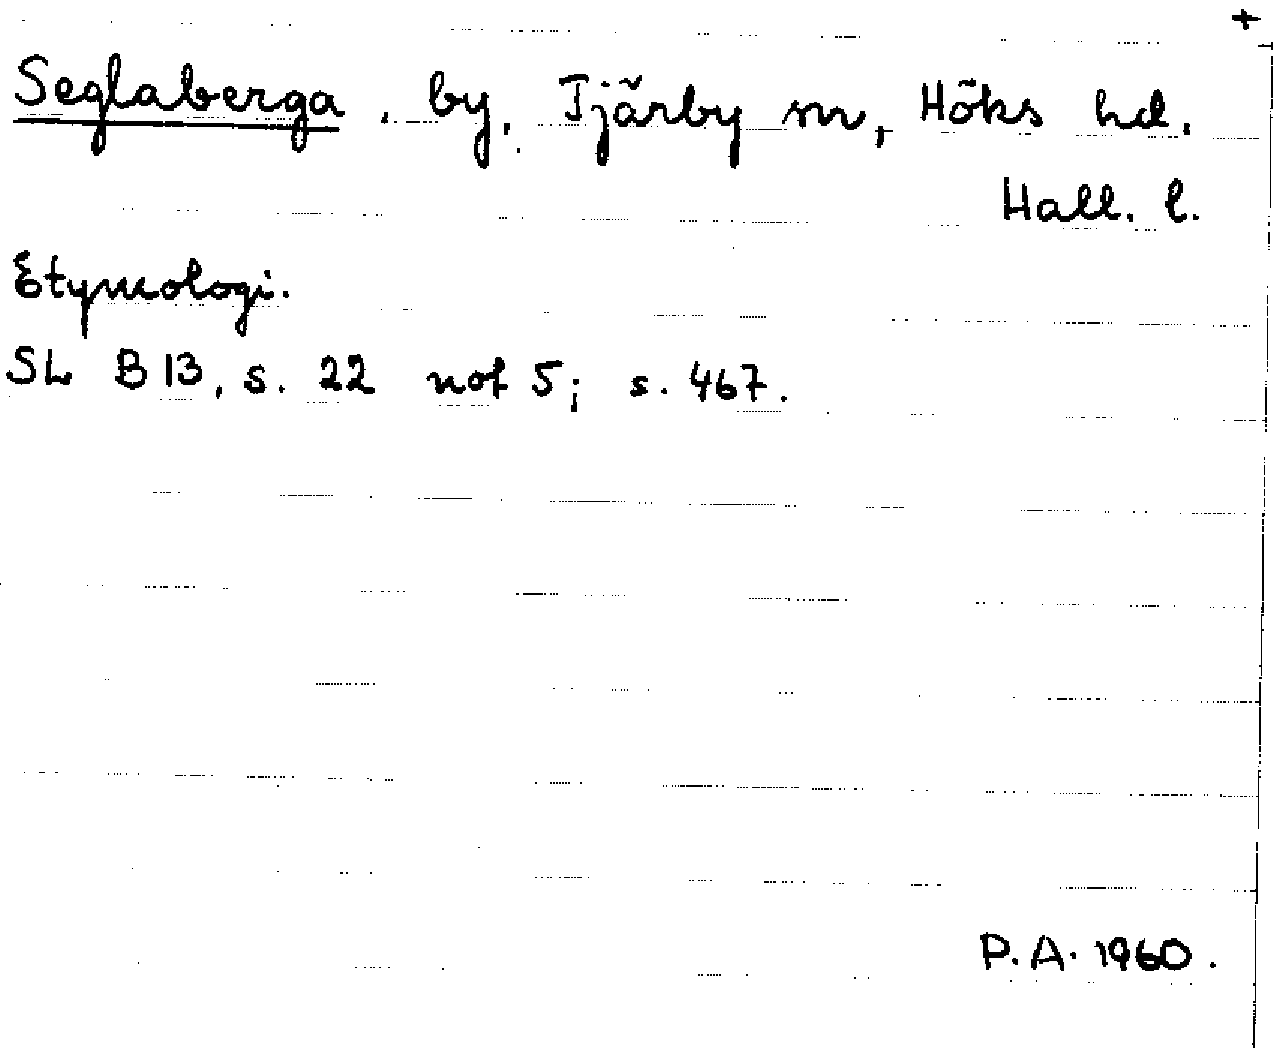 +
Seglaberga, by, Tjärby sn, Höks hd.
Hall. l.
Etymologi.
SL B 13, s. 22 not 5; s. 467.
P.A. 1960.